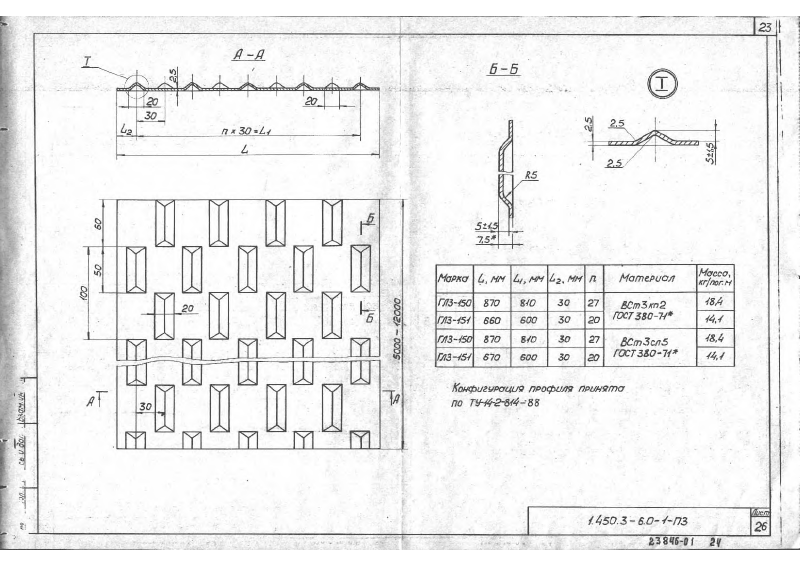 23
А-А
I
2,5
20
30
20
L2
n × 30 = L1
L
Б-Б
R5
5±1,5
7,5*
I
2,5
2,5
2,5
5±1,5
60
50
100
20
30
Б
Б
А
А
5000-12000
Марка L, мм L1, мм L2, мм n Материал Масса, кг/пог.м
ГЛЗ-150 870 810 30 27 ВСт3кп2 ГОСТ 380-71* 18,4
ГЛЗ-151 660 600 30 20 14,1
ГЛЗ-150 870 810 30 27 ВСт3сп5 ГОСТ 380-71* 18,4
ГЛЗ-151 670 600 30 20 14,1
Конфигурация профиля принята
по ТУ-14-2-814-88
1.450.3-6.0-1-ПЗ
Лист
26
23846-01 24